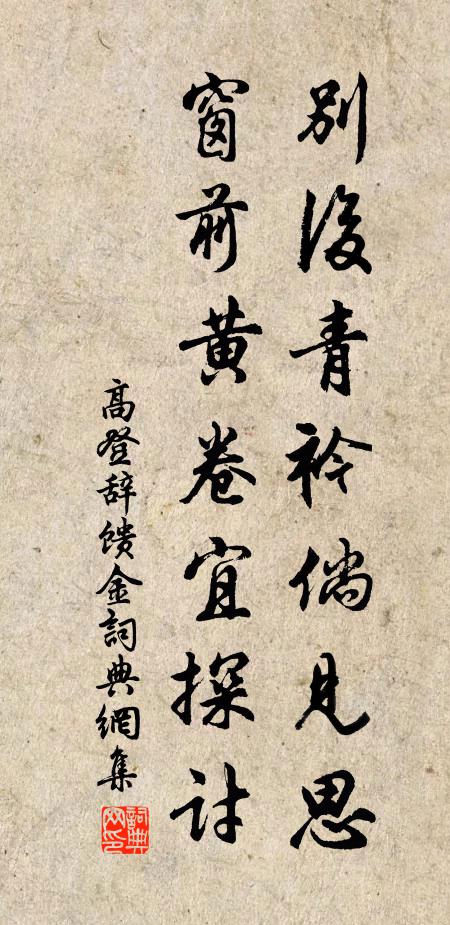 別後青衿倘見思
窗前黃卷宜探討
高登辞馈金詞典網集
詞典網印